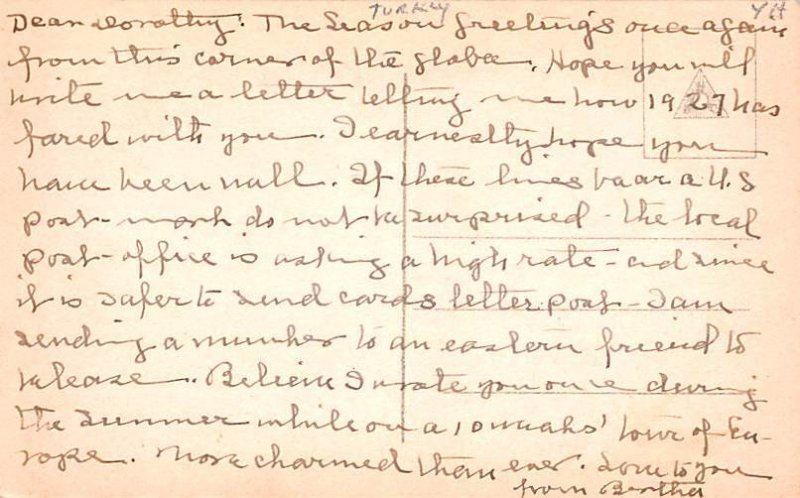 TURKEY YH
Dear Dorothy: The Season greetings once again
from this corner of the globe. Hope you will
write me a letter telling me how 1927 has
fared with you. I earnestly hope you
have been well. If these lines bear a U.S
post-mark do not be surprised - the local
post-office is asking a high rate - and since
it is safer to send cards letter post - I am
sending a number to an eastern friend to
release. Believe I wrote you once during
the summer while on a 10 weeks' tour of Eu-
rope. More charmed than ever. Love to you
from Bertha